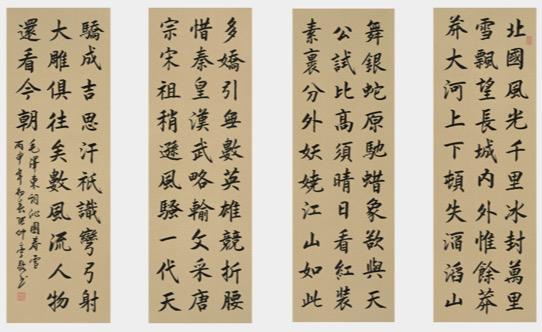 北國風光千里冰封萬里
雪飄望長城內外惟餘莽
莽大河上下頓失滔滔山
舞銀蛇原馳蜡象欲與天
公試比高須晴日看紅裝
素裹分外妖嬈江山如此
多嬌引無數英雄競折腰
惜秦皇漢武略輸文采唐
宗宋祖稍遜風騷一代天
驕成吉思汗祇識彎弓射
大雕俱往矣數風流人物
還看今朝
毛澤東詞沁園春雪
丙申年